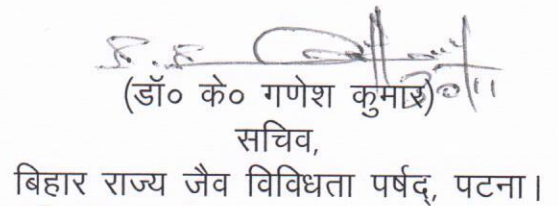 (डॉ० के० गणेश कुमार)
सचिव,
बिहार राज्य जैव विविधता पर्षद्, पटना।